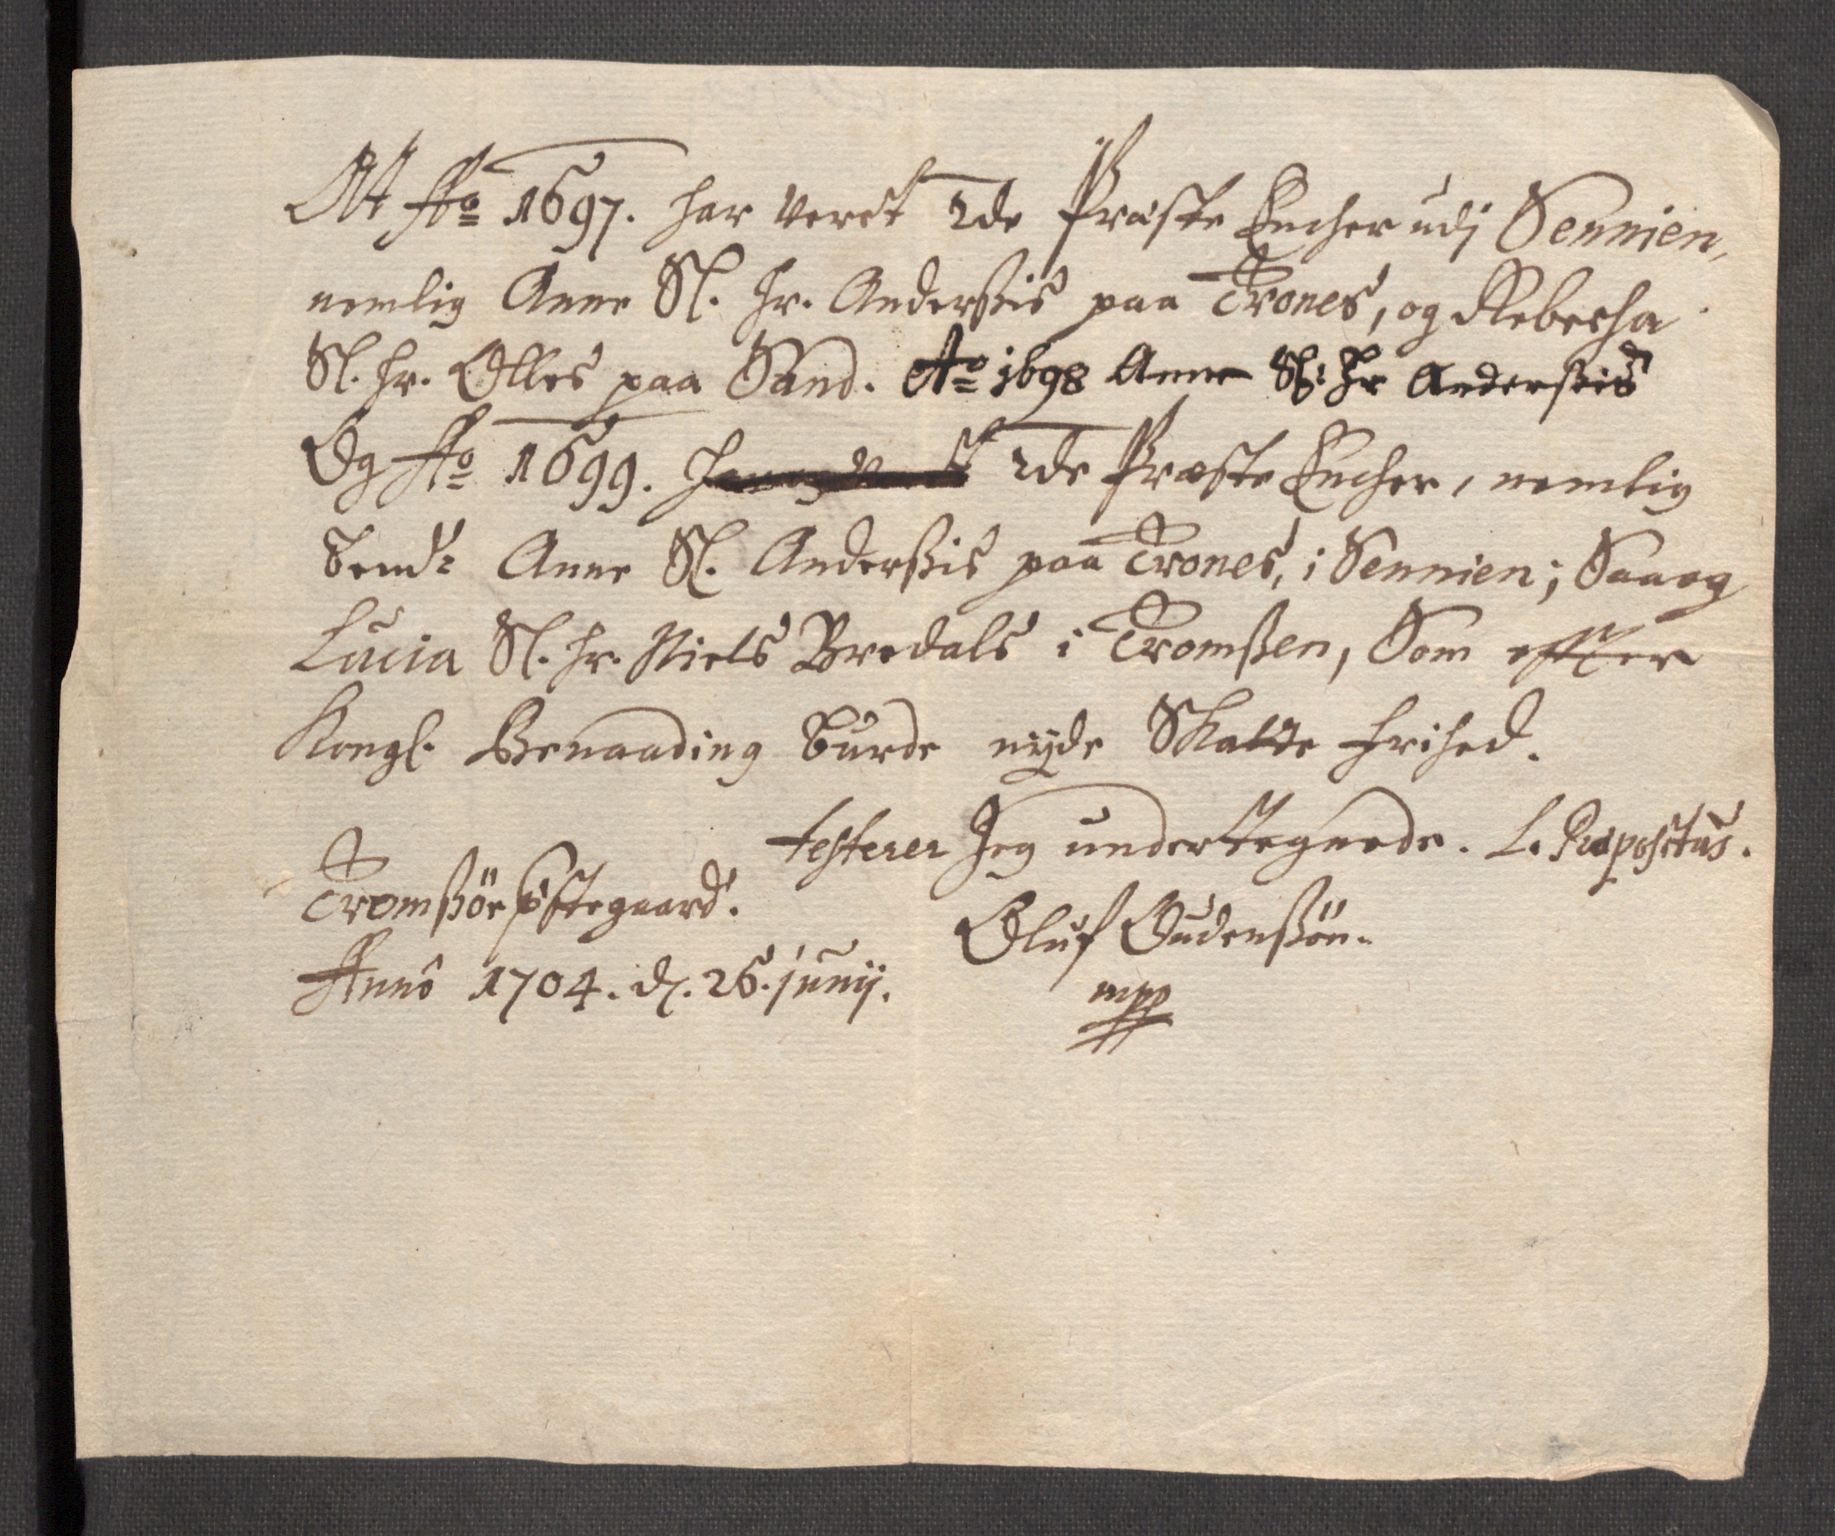 Att Ao 1697. har veret 2de Præste Encher udj Sennien,
nemlig Anne Sl. Hr. Anderßis paa Trones, og Rebecha
Sl. Hr. Olles paa Sand. Ao 1698 Anne Sl: Hr Anderßis
Og Ao 1699. 2de Præste Encher, nemlig
bemd: Anne Sl. Anderßis paa Trones, i Sennien; Saa og
Lucia Sl. Hr. Niels Bredals i Tromßen, Som effter
Kongl. Benaading burde nyde Skatte frihed.
testerer Jeg undertegnede. L. Præpositus.
Tromßöe pstegaard.
Oluf Oudenßön.
Anno 1704. d. 26. junij.
mpp